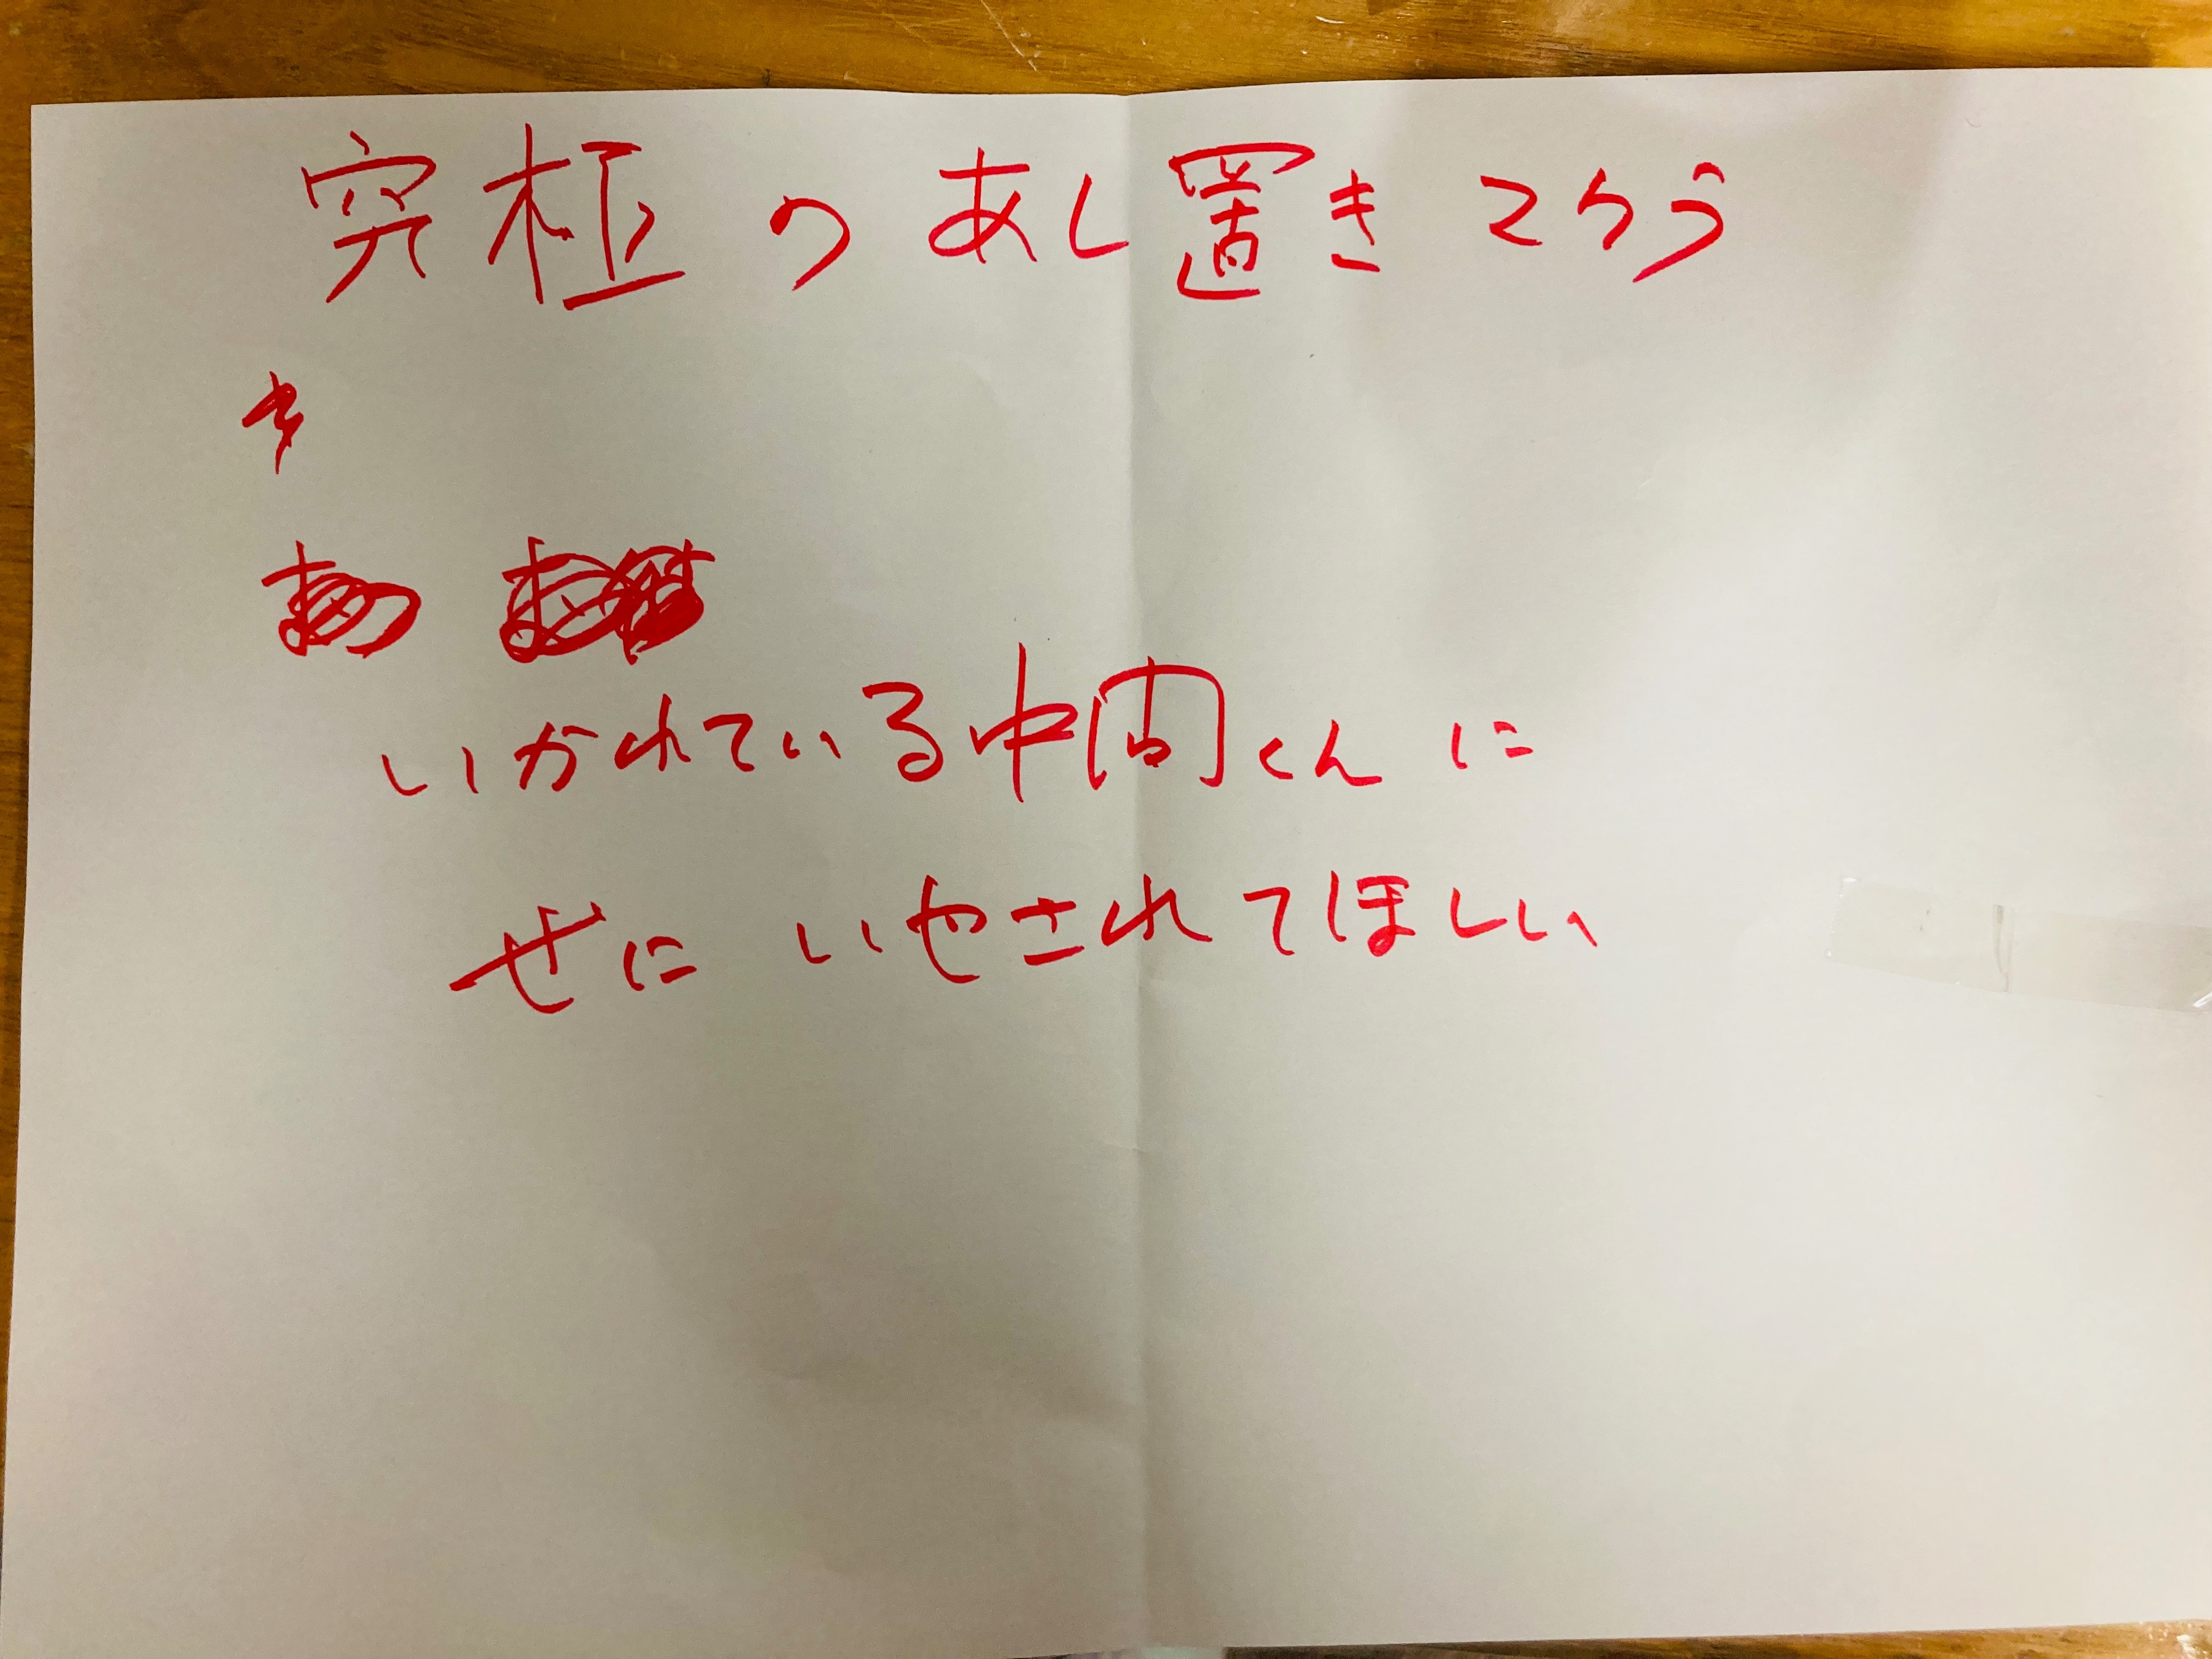 究極のあし置きマクラ
いかれている中間くんに
ぜにいやされてほしい